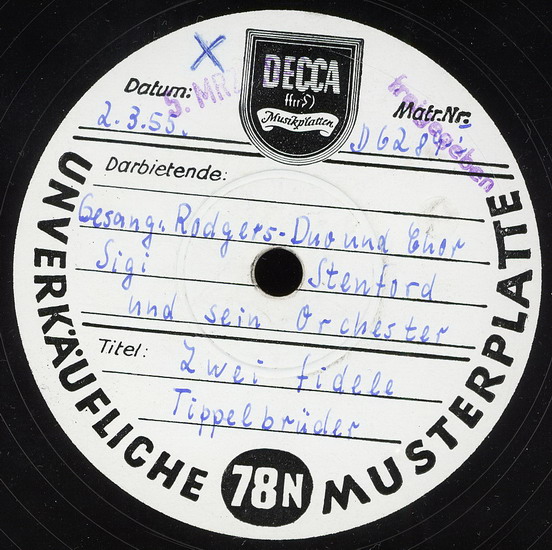 DECCA
ffrr
Musikplatten
X
Datum:
5. MRZ
2.3.55.
Matr.Nr.
freigegeben
Darbietende:
Gesang: Rodgers-Duo und Chor
Sigi Stenford
und sein Orchester
Titel:
Zwei fidele
Tippelbrüder
78N
UNVERKÄUFLICHE MUSTERPLATTE